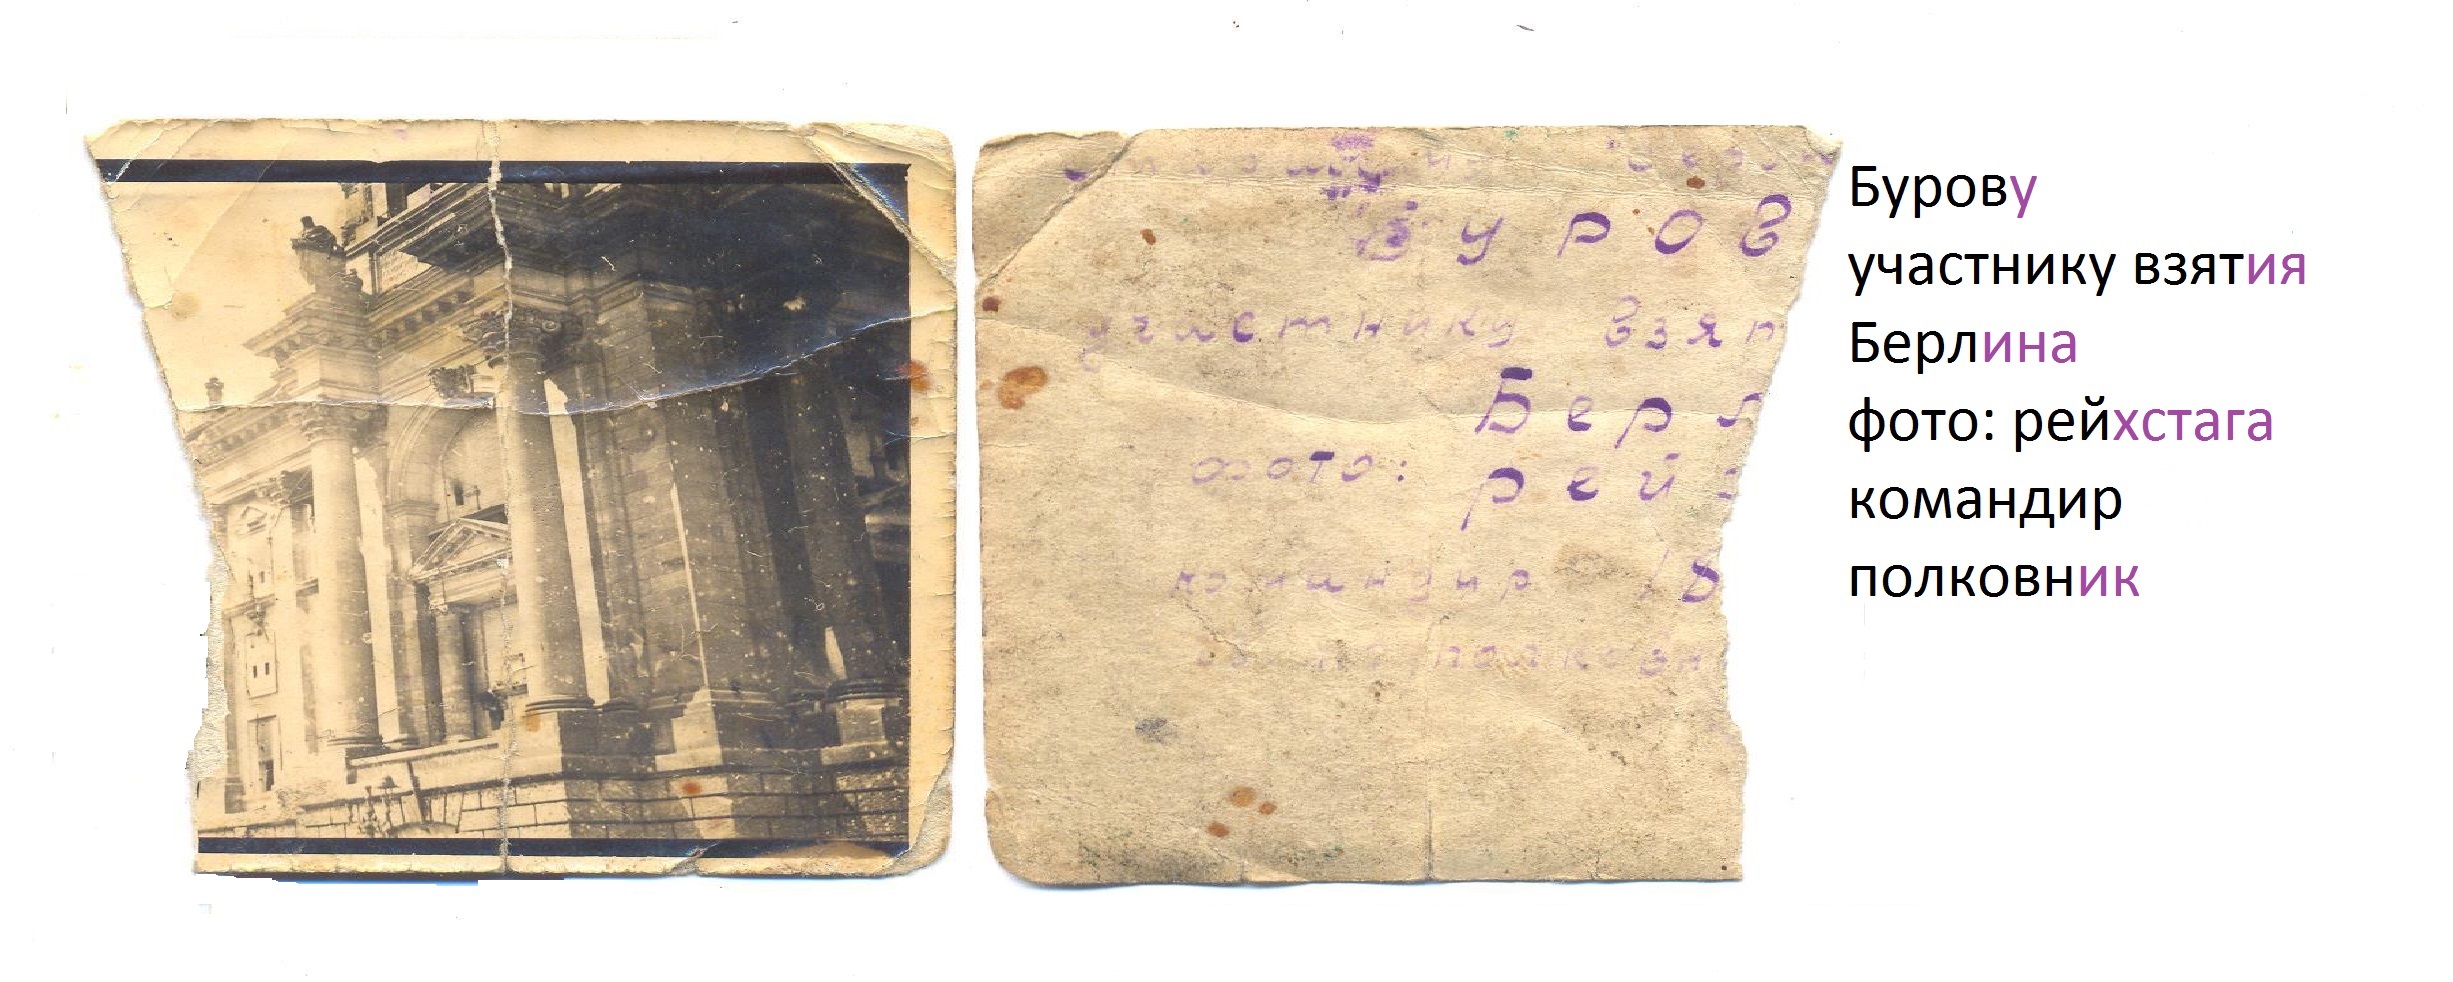 Буров
участнику взят
Берл
фото: рей
командир
полковн
Бурову
участнику взятия
Берлина
фото: рейхстага
командир
полковник